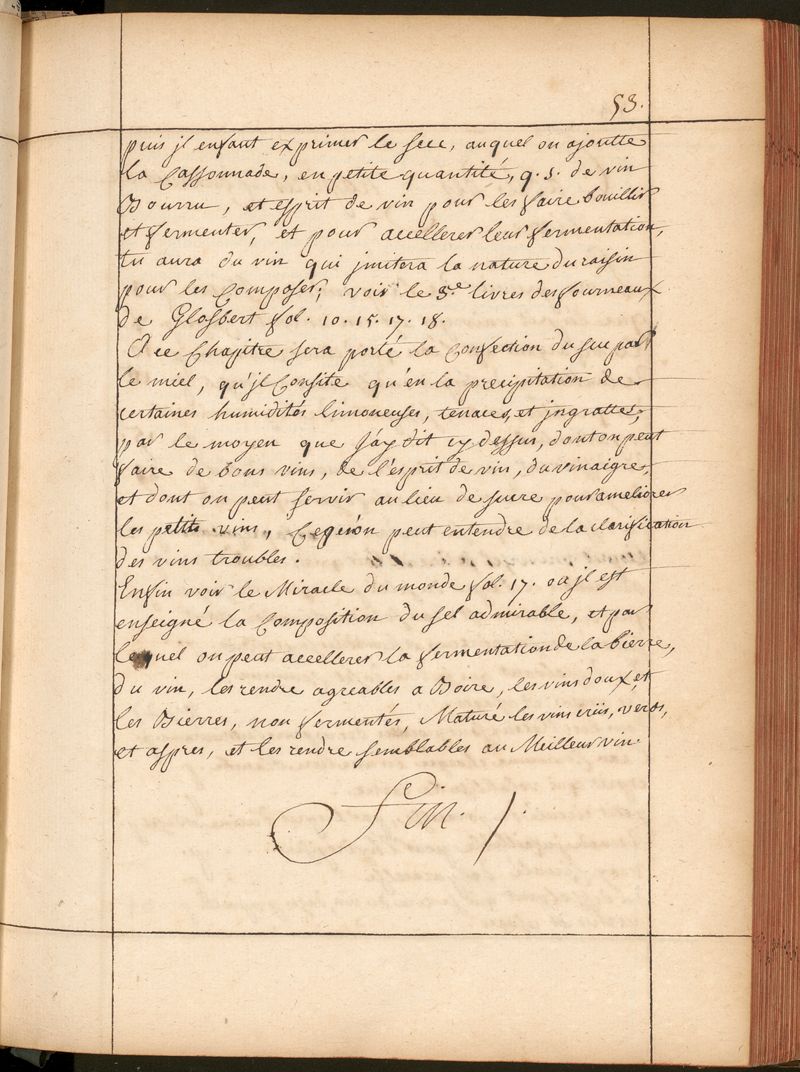 53.
puis jl enfaut exprimer le succ, auquel on ajoutte
la Cassonnade, en petite quantité, q. s. de vin
Bourru, et esprit de vin pour les faire bouillir
et fermenter, et pour accellerer leur fermentation,
tu aura du vin qui jmitera la nature du raisin
pour les Composer; voir le 3.e livres des fourneaux
de Glosbert fol. 10. 15. 17. 18.
A ce Chapitre sera porté la Confection du suc par
le miel, qu'jl Consite qu'en la precipitation de
certaines humidités limoneuses, tenaces, et jngrattes,
par le moyen que j'ay dit cy dessus, dont on peut
faire de bons vins, de l'esprit de vin, du vinaigre,
et dont on peut servir au lieu de sucre pour ameliorer
les petits vins, Ceque on peut entendre de la clarification
des vins troubles.
Enfin voir le Miracle du monde fol. 17. oa jl est
enseigné la Composition du sel admirable, et par
lequel on peut accellerer la fermentation de la bierre,
du vin, les rendre agreables a Boire, les vins doux, et
les Bierres, non fermentés, Maturé les vins crüs, verds,
et aspres, et les rendre semblables au Meilleur vin.
Fin.